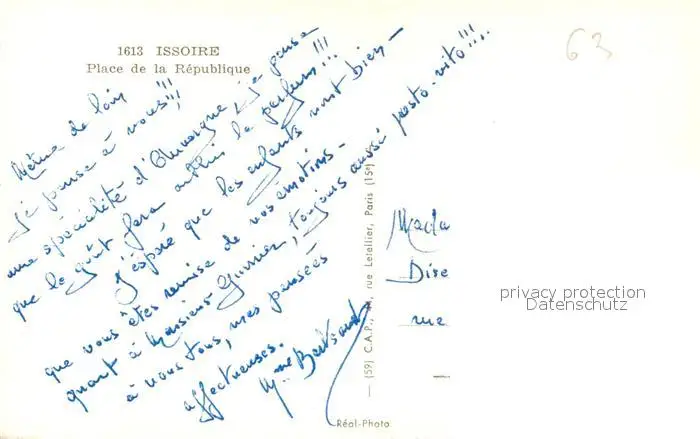 1613 ISSOIRE
Place de la République
63
Même de loin
je pense à vous!!!
une spécialité d'Auvergne, je pense
que le goût fera oublier le parfum!!!
J'espère que les enfants vont bien -
que vous êtes remise de vos émotions -
quant à Monsieur toujours aussi presto-vito!!!
à vous tous, mes pensées
affectueuses.
Mme
(59) C.A.P., rue Letellier, Paris (15e)
Réal-Photo
Mada
Dire
rue
privacy protection
Datenschutz